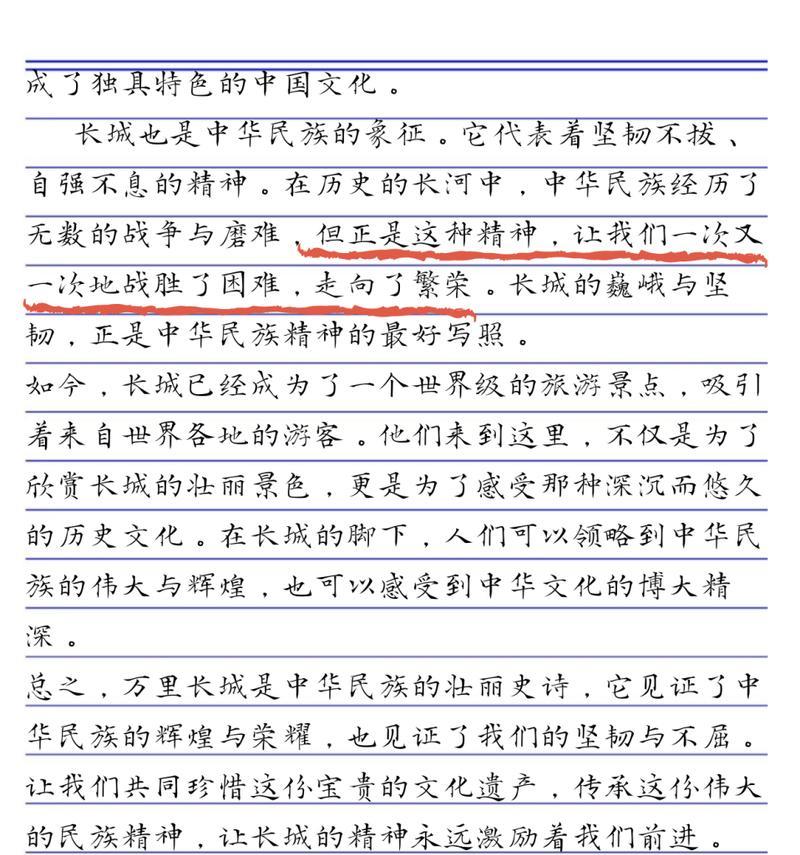 成了独具特色的中国文化。
长城也是中华民族的象征。它代表着坚韧不拔、
自强不息的精神。在历史的长河中，中华民族经历了
无数的战争与磨难，但正是这种精神，让我们一次又
一次地战胜了困难，走向了繁荣。长城的巍峨与坚
韧，正是中华民族精神的最好写照。
如今，长城已经成为了一个世界级的旅游景点，吸引
着来自世界各地的游客。他们来到这里，不仅是为了
欣赏长城的壮丽景色，更是为了感受那种深沉而悠久
的历史文化。在长城的脚下，人们可以领略到中华民
族的伟大与辉煌，也可以感受到中华文化的博大精
深。
总之，万里长城是中华民族的壮丽史诗，它见证了中
华民族的辉煌与荣耀，也见证了我们的坚韧与不屈。
让我们共同珍惜这份宝贵的文化遗产，传承这份伟大
的民族精神，让长城的精神永远激励着我们前进。